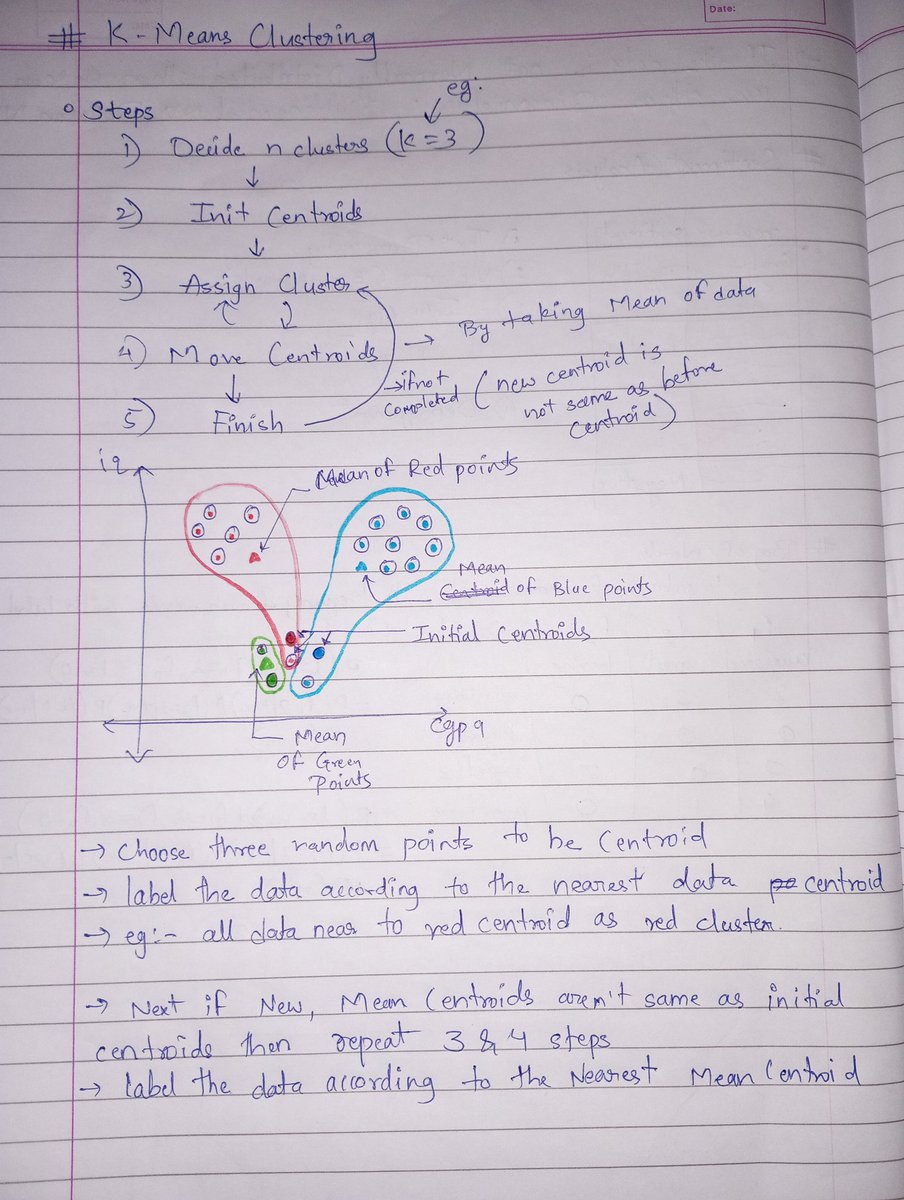 Date:
# K-Means Clustering
Steps
eg:
1) Decide n clusters (K=3)
2) Init Centroids
3) Assign Cluster
4) Move Centroids → By taking Mean of data
→ if not completed (new centroid is not same as before centroid)
5) Finish
iq
Mean of Red points
Mean
Centroid of Blue points
Initial Centroids
cgpa
Mean
of Green
Points
→ Choose three random points to be Centroid
→ label the data according to the nearest data centroid
→ eg:- all data near to red centroid as red cluster.
→ Next if New, Mean Centroids aren't same as initial
centroids then repeat 3 & 4 steps
→ label the data according to the Nearest Mean Centroid